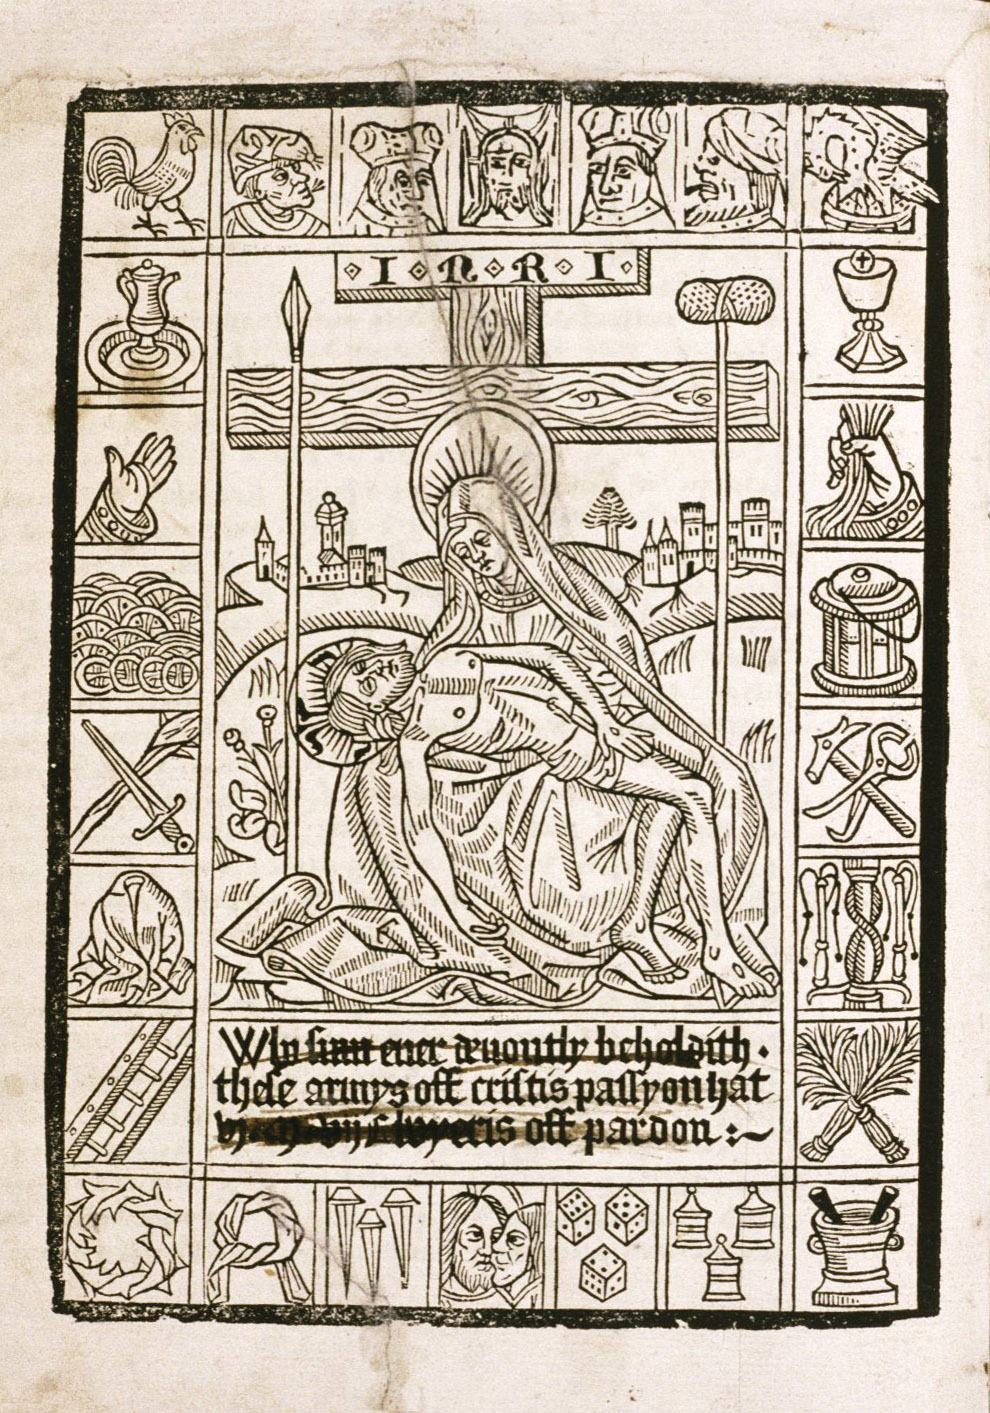 I N R I
Who sum euer deuoutly beholdith ·
these armys off cristis passyon hat
yeris off pardon :~